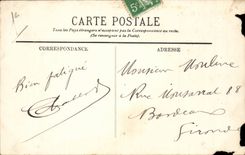 CARTE POSTALE
Tous les Pays étrangers n'acceptent pas la Correspondance au recto.
(Se renseigner à la Poste)
CORRESPONDANCE
ADRESSE
Bien fatigué
Monsieur Mouline
Rue 18
Bordeaux
Gironde